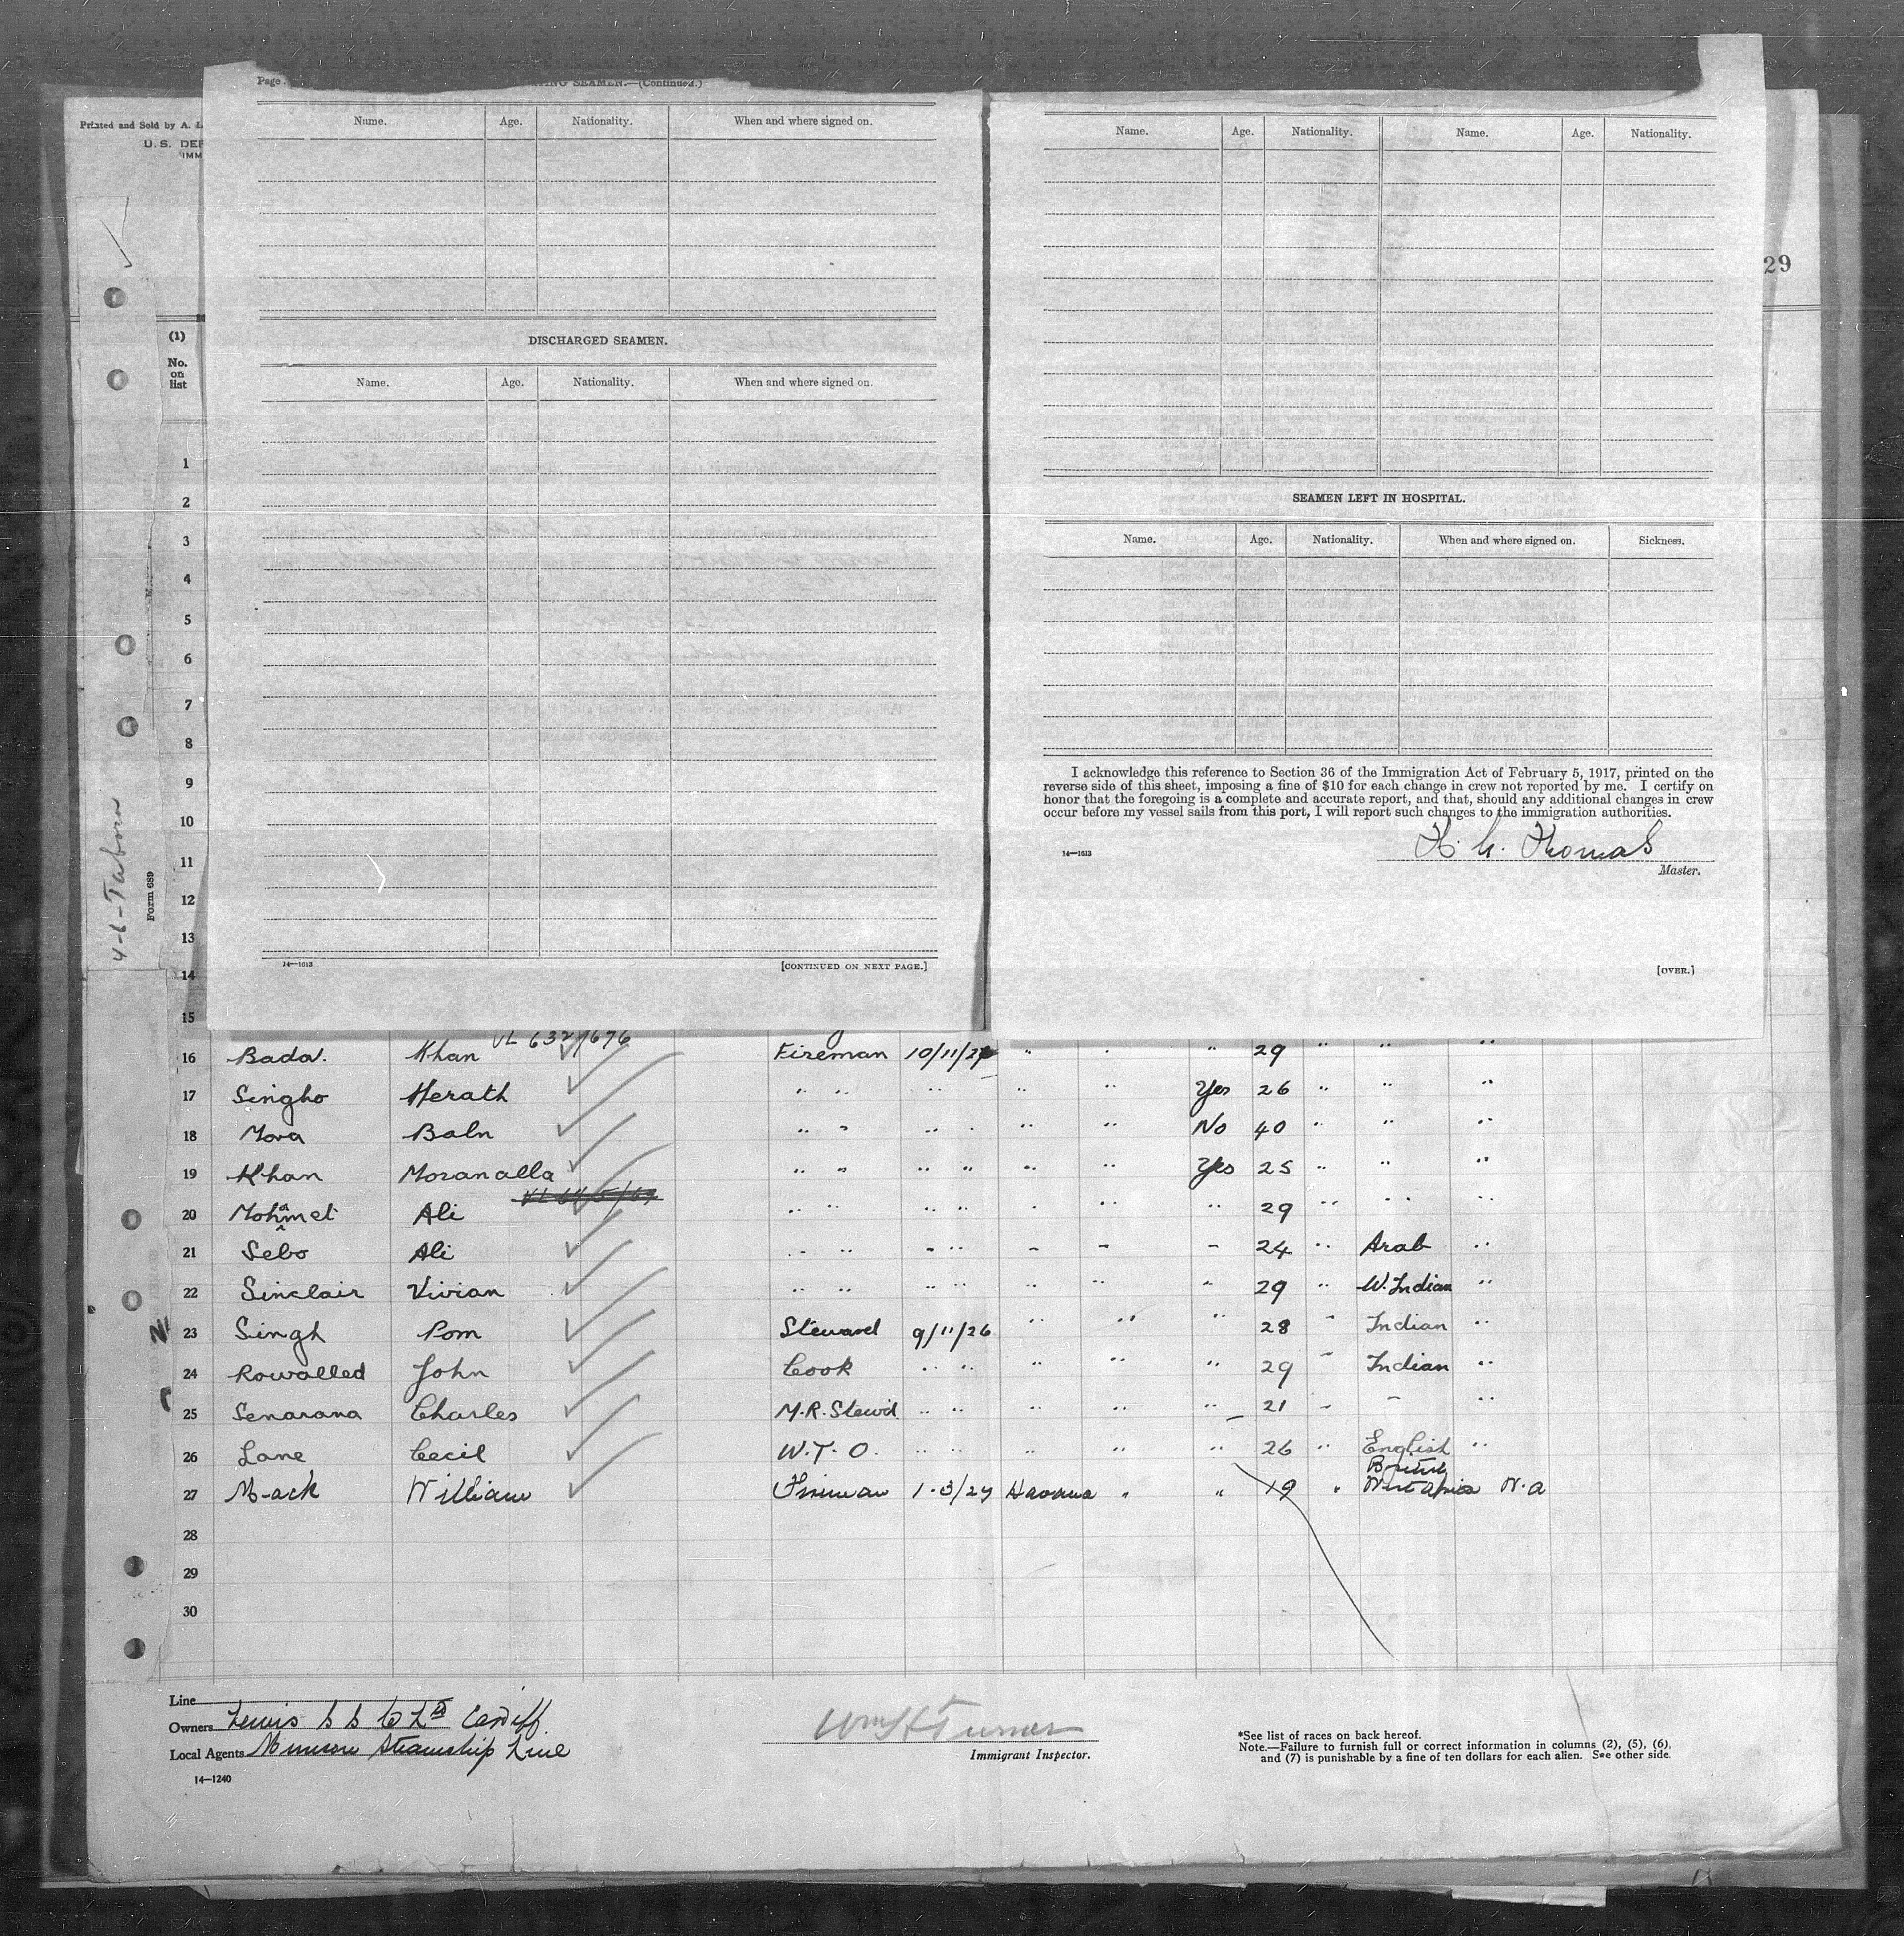 Page
TING SEAMEN.—(Continued.)
Name. Age. Nationality. When and where signed on.
DISCHARGED SEAMEN.
Name. Age. Nationality. When and where signed on.
14—1613 [CONTINUED ON NEXT PAGE.]
Name. Age. Nationality. Name. Age. Nationality.
SEAMEN LEFT IN HOSPITAL.
Name. Age. Nationality. When and where signed on. Sickness.
I acknowledge this reference to Section 36 of the Immigration Act of February 5, 1917, printed on the
reverse side of this sheet, imposing a fine of $10 for each change in crew not reported by me. I certify on
honor that the foregoing is a complete and accurate report, and that, should any additional changes in crew
occur before my vessel sails from this port, I will report such changes to the immigration authorities.
Thomas
14—1613
Master.
[OVER.]
Printed and Sold by A. L
U.S. DEP
IMM
29
(1)
No.
on
list
4-6-Taborn
Form 689
1
2
3
4
5
6
7
8
9
10
11
12
13
14
15
VL 632/676
16 Bada. Khan Fireman 10/11/26 " " " 29 " " "
17 Singho Herath " " " " " Yes 26 " " "
18 Mova Baln " " " " " " No 40 " " "
19 Khan Moranalla " " " " " " Yes 25 " " "
20 Mohamet Ali " " " " " " " 29 " " " "
21 Sebo Ali " " " " " " " 24 " Arab "
22 Sinclair Vivian " " " " " " " 29 " W. Indian "
23 Singh Pom Steward 9/11/26 " " " 28 " Indian "
24 Rowalled John Cook " " " " " 29 " Indian "
25 Senarana Charles M.R. Stewd. " " " " " 21 " " "
26 Lane Cecil W.T.O. " " " " " 26 " English "
British
27 Mack William Fireman 1-3/27 Havana " " 19 " West Africa W.A
28
29
30
Line
Owners Lewis S S Co Ltd Cardiff
Local Agents Munson Steamship Line
14—1240
Wm H Turner
Immigrant Inspector.
*See list of races on back hereof.
Note.—Failure to furnish full or correct information in columns (2), (5), (6),
and (7) is punishable by a fine of ten dollars for each alien. See other side.